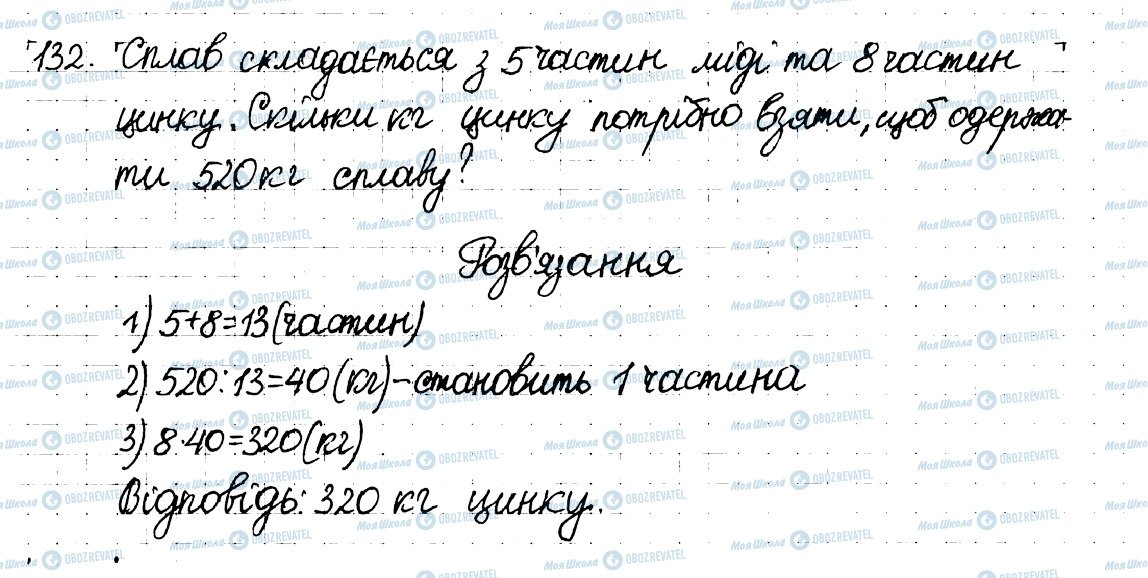 132. Сплав складається з 5 частин міді та 8 частин
цинку. Скільки кг цинку потрібно взяти, щоб одержа-
ти 520 кг сплаву?
Розв'язання
1) 5+8=13 (частин)
2) 520:13=40 (кг) – становить 1 частина
3) 8·40=320 (кг)
Відповідь: 320 кг цинку.